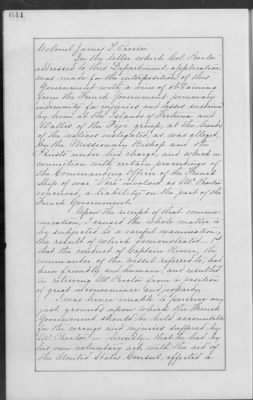 644
Colonel James T. Proctor
In the letter which Col. Proctor
addressed to this Department application
was made for the interposition of this
Government with a view of obtaining
from the French Government pecuniary
indemnity for injuries and losses sustained
by him at the Islands of Fortuna and
Wallis of the group, at the hands
of the natives instigated, as was alleged,
by the Missionary Bishop and the
Priests under his charge, and which in
connection with certain proceedings of
the Commanding Officer of the French
Ship of war involved as Mr. Proctor
conceived, a liability on the part of the
French Government.
Upon the receipt of that commu-
nication, I caused the whole matter to
be subjected to a careful examination,
the result of which demonstrated
that the conduct of Captain
the commander of the vessel referred to, had
been friendly and humane, and resulted
in relieving Mr. Proctor from a position
of great inconvenience and jeopardy.
I was hence unable to perceive any
just grounds upon which the French
Government should be held accountable
for the wrongs and injuries suffered by
Mr. Proctor. Secondly that he had by
his own voluntary act, with the aid of
the United States Consul, effected a